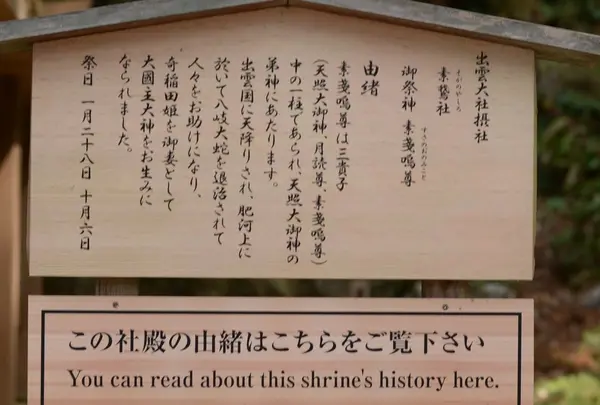 出雲大社摂社
素鵞社
そがのやしろ
御祭神 素戔嗚尊
すさのおのみこと
由緒
素戔嗚尊は三貴子
(天照大御神、月読尊、素戔嗚尊)
中の一柱であられ、天照大御神の
弟神にあたります。
出雲国に天降りされ、肥河上に
於いて八岐大蛇を退治されて
人々をお助けになり、
奇稲田姫を御妻として
大國主大神をお生みに
なられました。
祭日 一月二十八日 十月六日
この社殿の由緒はこちらをご覧下さい
You can read about this shrine's history here.